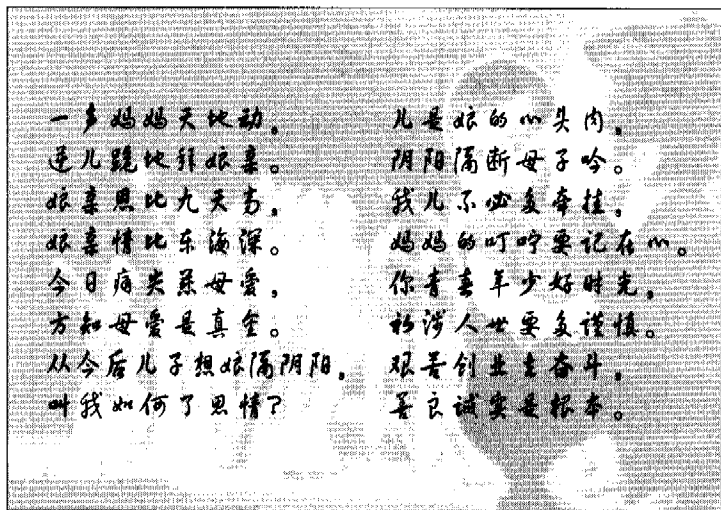 一声妈妈天地动，
逆儿跪地拜娘亲。
娘亲恩比九天高，
娘亲情比东海深。
今日痛失慈母爱，
方知母爱是真金。
从今后儿子想娘隔阴阳，
叫我如何了恩情？
儿是娘的心头肉，
阴阳隔断母子吟。
我儿不必多牵挂，
妈妈的叮咛要记在心。
你青春年少好时光，
初涉人世要多谨慎。
艰苦创业去奋斗，
善良诚实是根本。